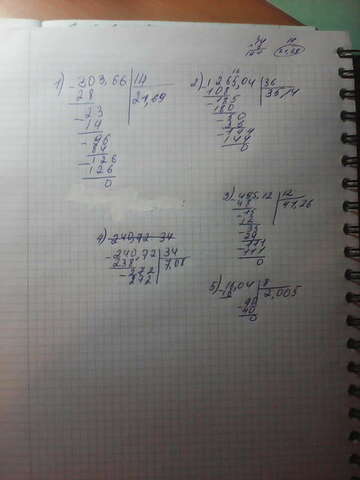 1) 303,66 | 14
28 | 21,69
23
14
96
84
126
126
0
2) 1265,04 | 36
108 | 35,14
185
180
50
36
144
144
0
3) 495,12 | 12
48 | 41,26
15
12
0
4) 240,72 34
240,72 | 34
238 | 7,08
272
272
5) 16,04 | 8
16 | 2,005
40
40
0